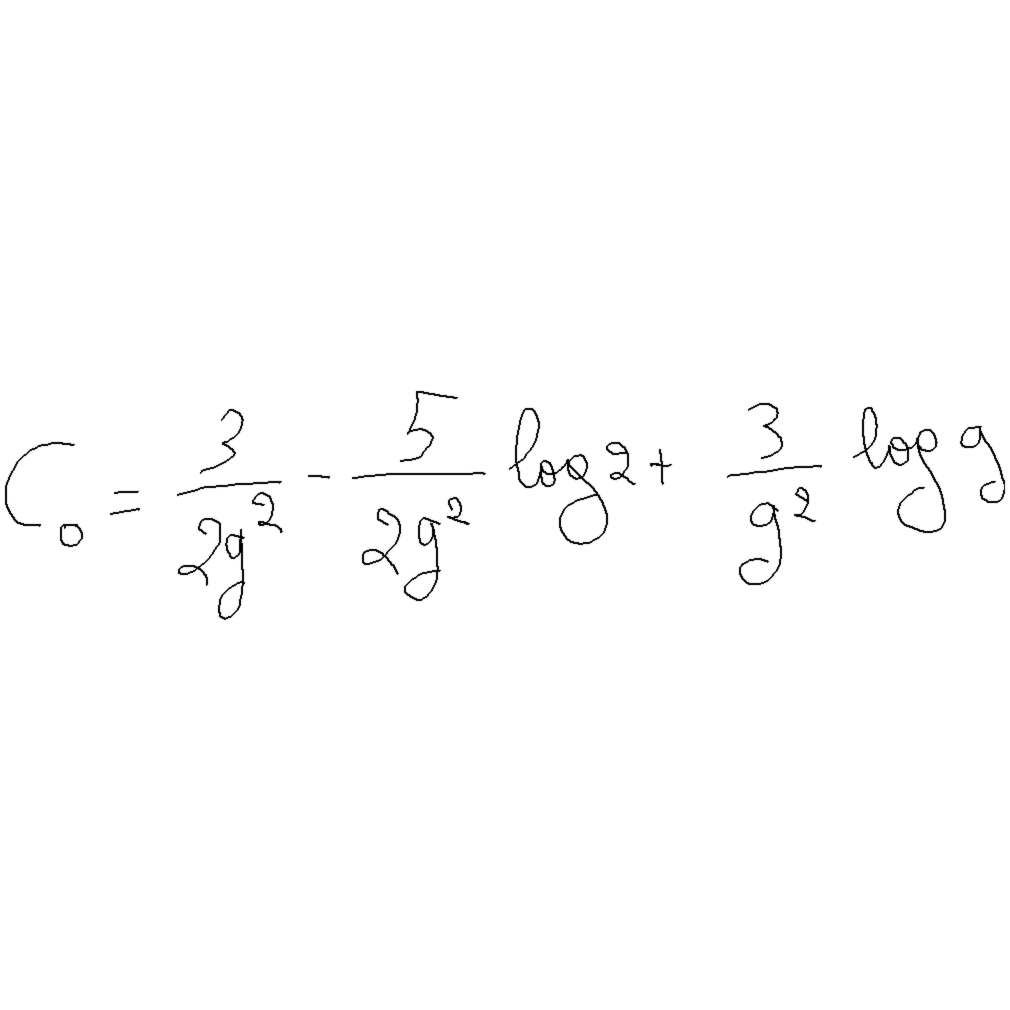 C_0 = \frac{3}{2g^2} - \frac{5}{2g^2} \log 2 + \frac{3}{g^2} \log g